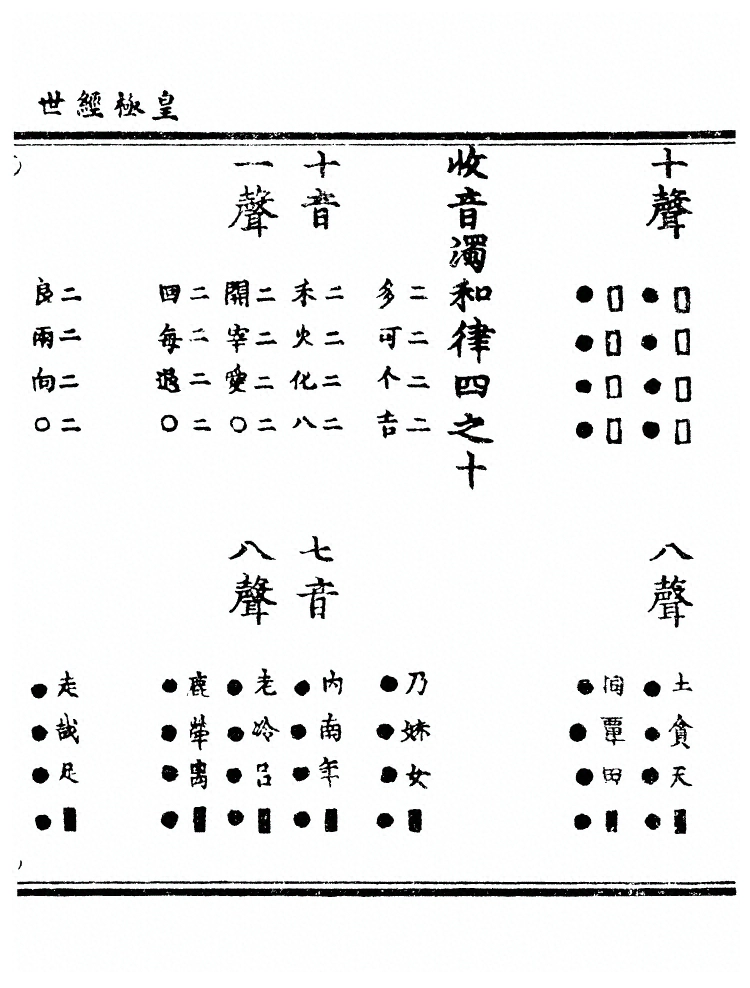 皇極經世
十聲
□□□□
●●●●
□□□□
●●●●
八聲
土貪天■
●●●●
同覃田■
●●●●
收音濁和律四之十
二二二二
多可个吉
乃妹女■
●●●●
十音
二二二二
禾火化八
七音
內南年■
●●●●
一聲
二二二二
開宰愛○
八聲
老冷呂■
●●●●
二二二二
回每退○
鹿犖离■
●●●●
二二二二
良兩向○
走哉足■
●●●●